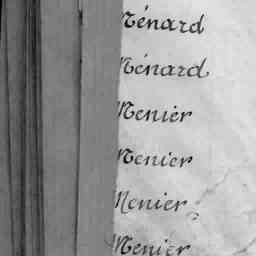 Ménard
Ménard
Menier
Menier
Menier
Menier